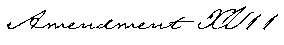 Amendment XVII